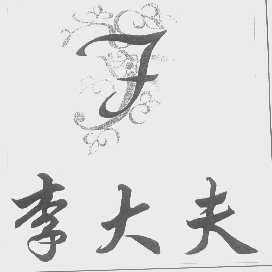 F
李大夫